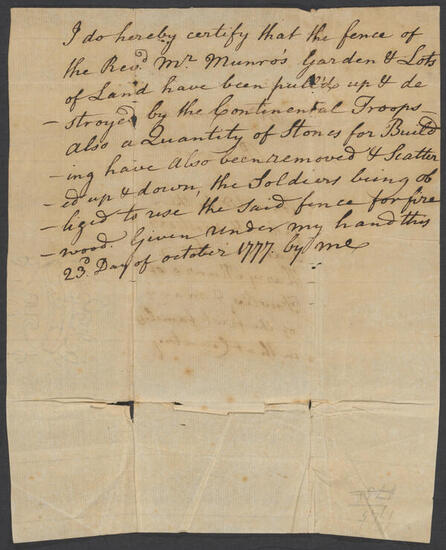 I do hereby certify that the fence of
the Revd. Mr. Munro's Garden & Lots
of Land have been pull'd up & de
- stroyed by the Continental Troops -
also a Quantity of Stones for Build
- ing have also been removed & Scatter
- ed up & down, the Soldiers being ob
- liged to use the said fence for fire
- wood. Given under my hand this
23d. Day of october 1777. by me